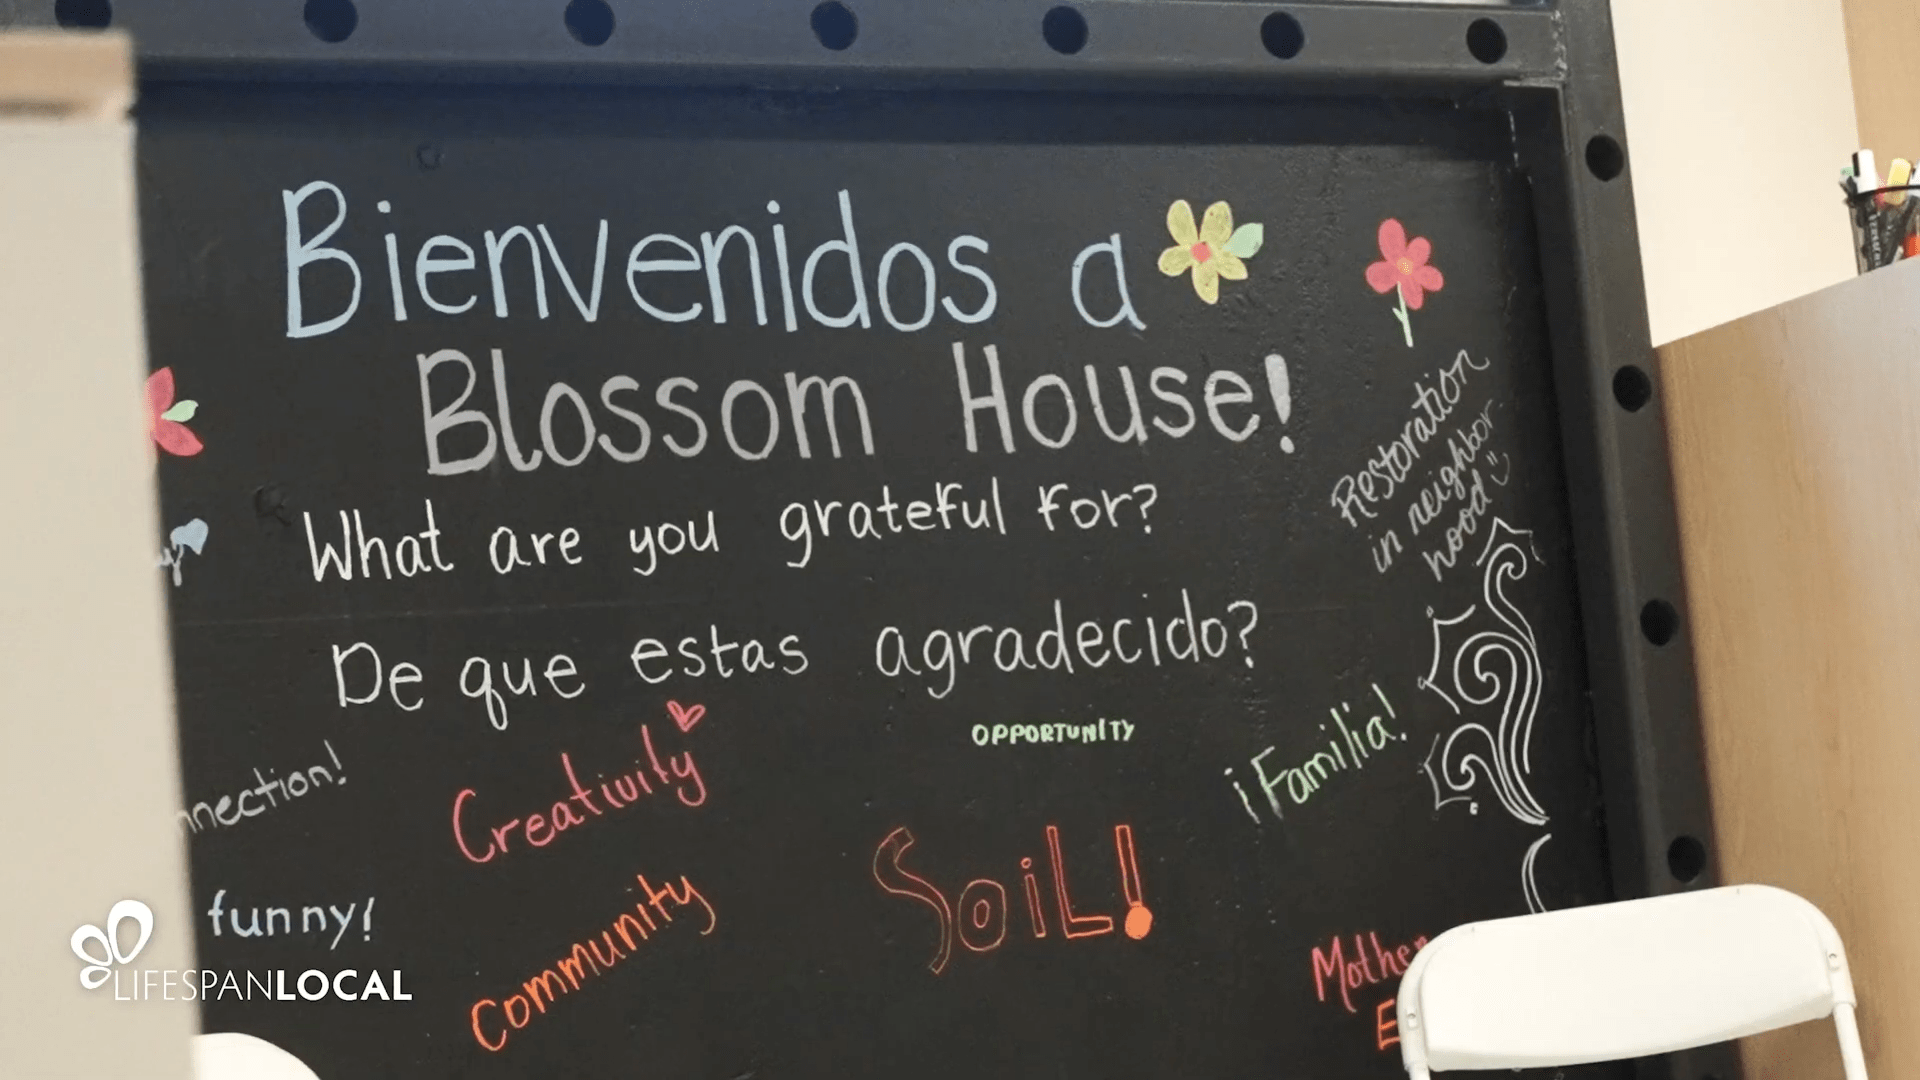 Bienvenidos a
Blossom House!
What are you grateful for?
De que estas agradecido?
Restoration
in neighbor-
hood
OPPORTUNITY
Creativity
¡Familia!
nnection!
SOiL!
funny!
Community
LIFESPANLOCAL